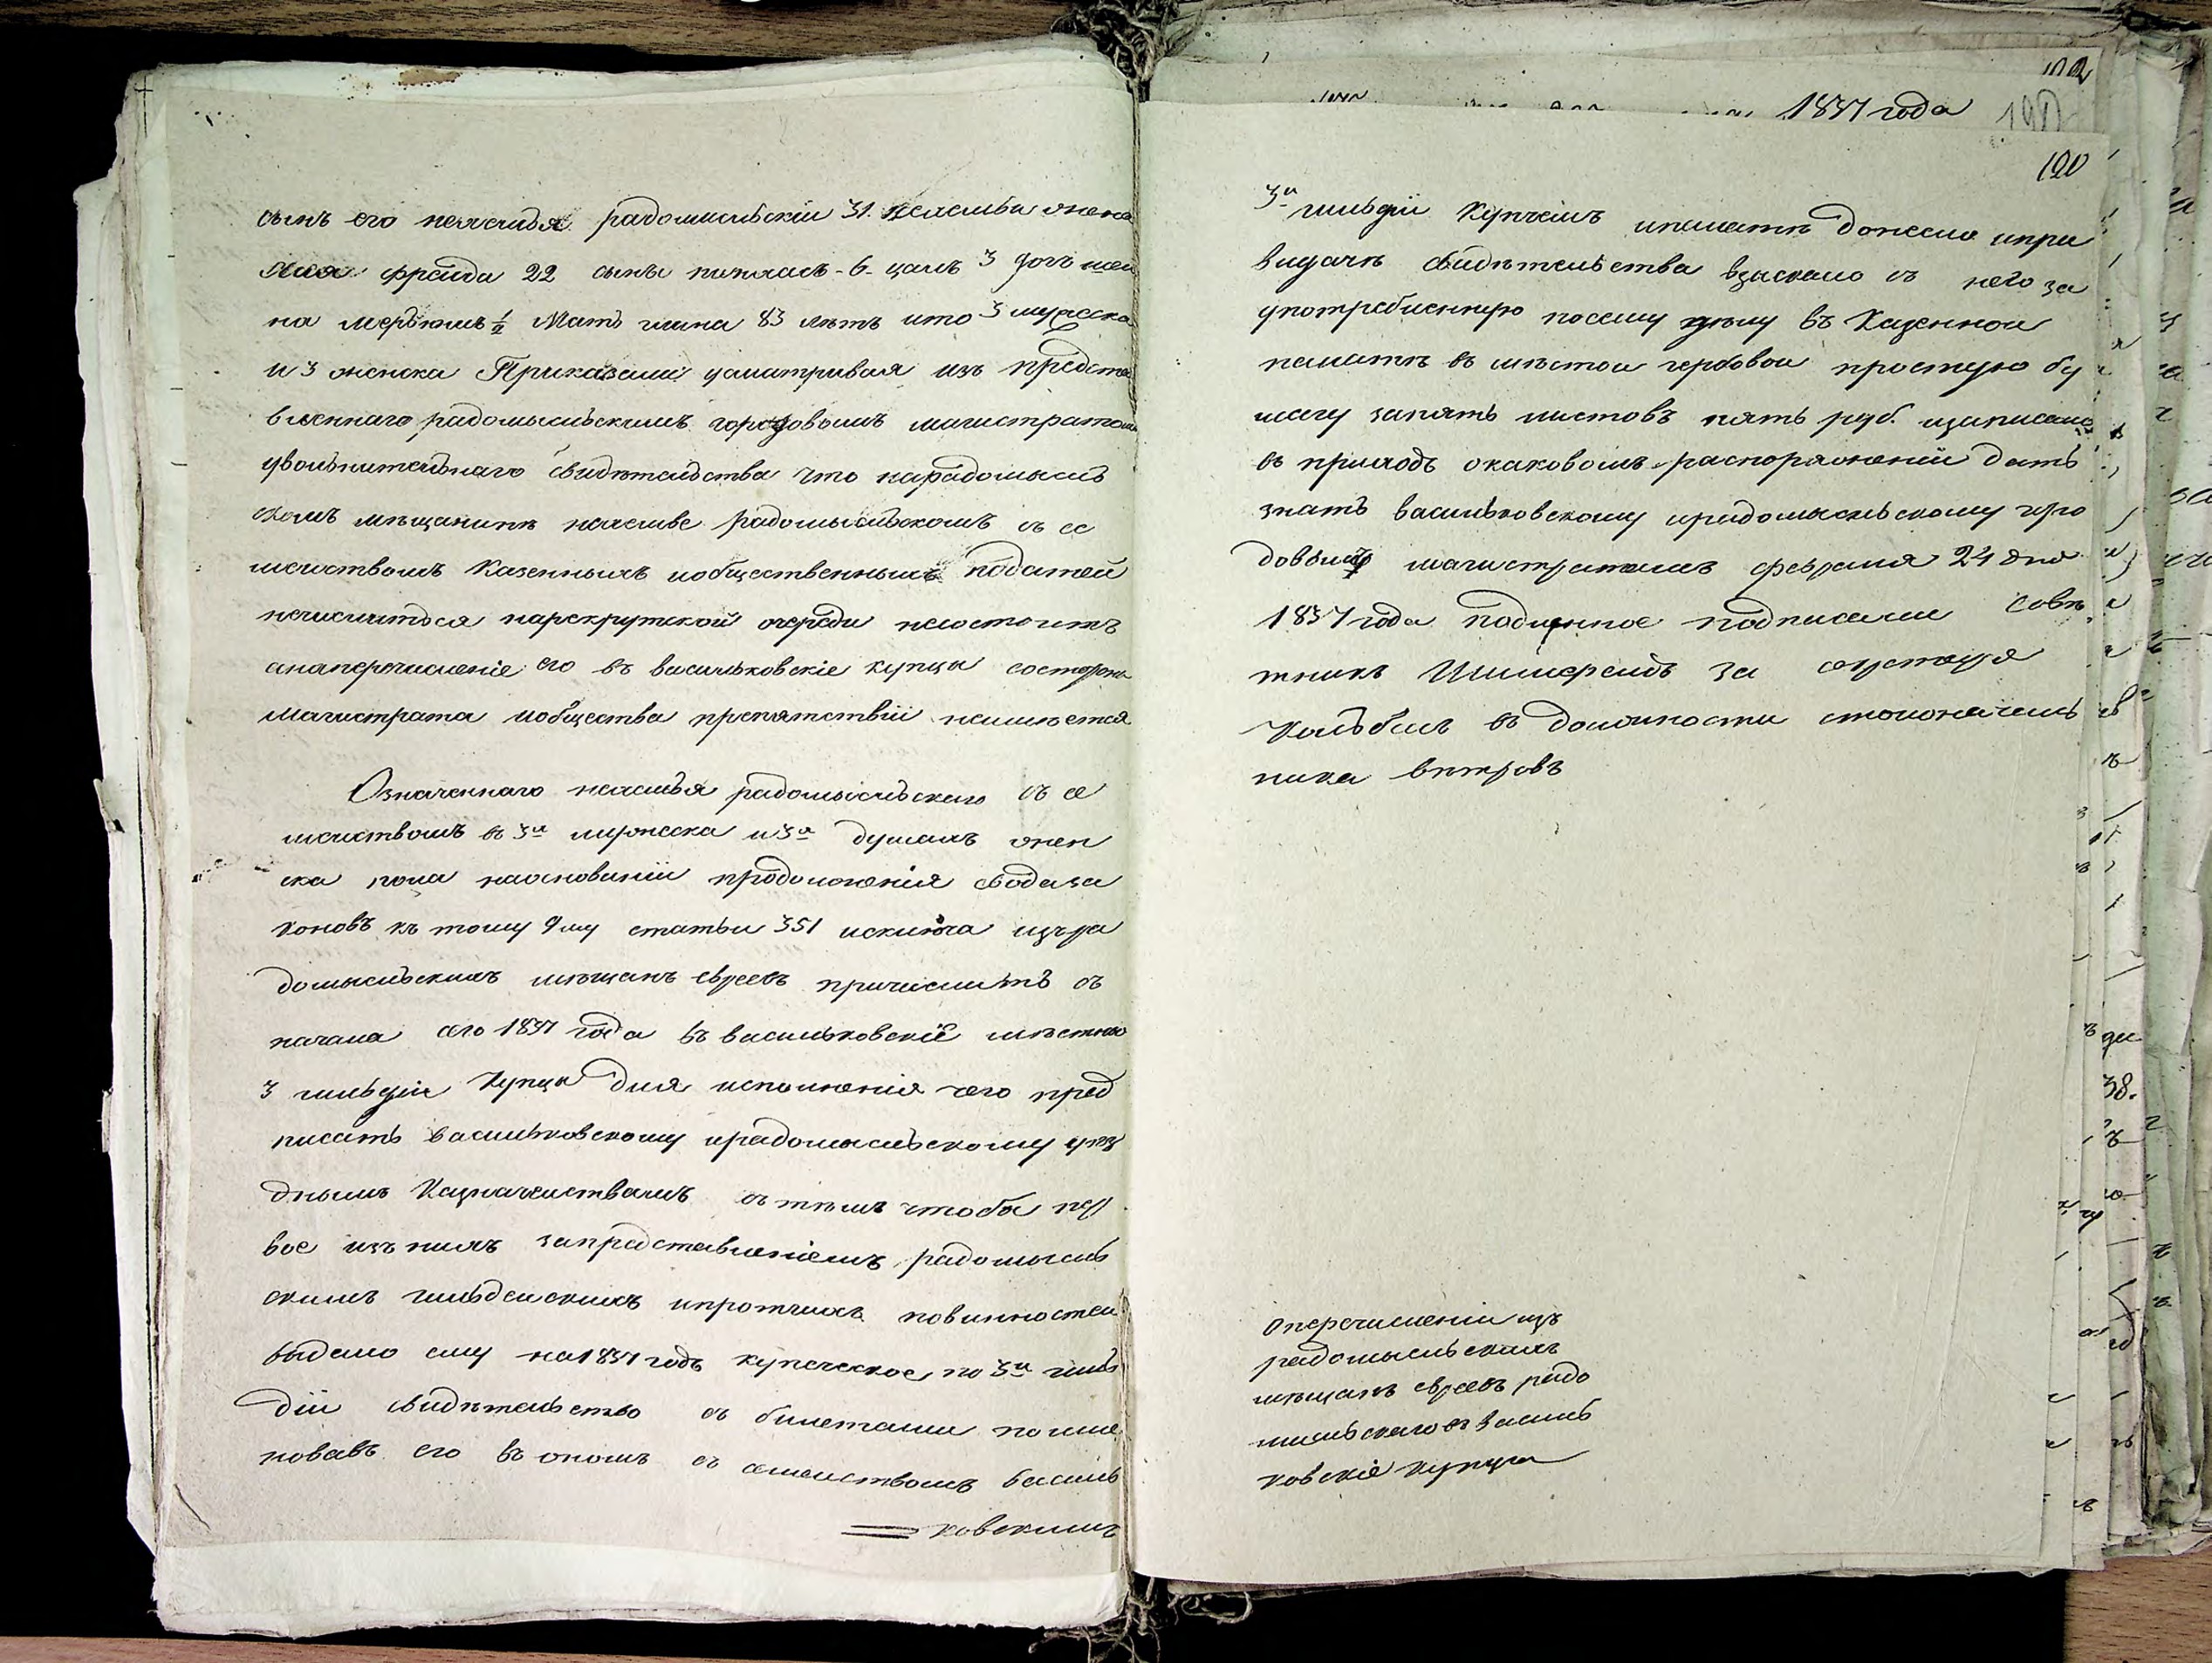 сынъ его нехемья радомысльскій 31. нехемьи жена
фрейда 22 сынъ пинхасъ - 6 - 3
на 1/2 Мать 83 лѣтъ итого 3 мужеска
и 3 женска Приказали усматривая изъ представ
вленнаго радомысльскимъ городовымъ магистратомъ
увольнительнаго свидѣтельства что нарадомысль
скомъ мещанинѣ нехемье радомысльскомъ съ се
мействомъ Казенныхъ иобщественныхъ податей
нечислится нарекрутской очереди несостоитъ
анаперечисленіе его въ васильковскіе купцы состороны
Магистрата иобщества препятствій неимѣется
Означеннаго нехемья радомысльскаго съ се
мействомъ въ 3хъ мужеска и 3хъ душахъ жен
ска пола наоснованіи продолженія свода за
коновъ къ тому 9му статьи 351 исключа изъ ра
домысльскихъ мѣщанъ евреевъ причислить съ
начала сего 1837 года въ васильковскіе мѣстно
3 гильдіи Купцы Для исполненія чего пред
писать васильковскому ирадомысльскому уѣз
днымъ Казначействамъ съ тѣмъ чтобы пер
вое изъ нихъ запредставленіемъ радомысль
скимъ гильдейскихъ ипротчихъ повинностей
выдало ему на 1837 годъ купеческое по 3й гиль
діи свидѣтельство съ билетами поиме
новавъ его въ ономъ съ семействомъ василь
ковскимъ
1837 года
190
3й гильдіи Купцемъ ипалатѣ донесло ипри
выдачѣ свидѣтельства взыскало съ него за
употребленную посему дѣлу въ Казенной
палатѣ въ мѣстои гербовой простую бу
магу запять листовъ пять руб. изаписало
въ приходъ окаковомъ распоряженіи дать
знать васильковскому ирадомысльскому горо
довымъ магистратамъ февраля 24 дня
1837 года подлинное подписали Совѣ
тникъ за секретаря
въ должности столоначаль
ника вѣтровъ
Оперечисленіи изъ
радомысльскихъ
мѣщанъ евреевъ радо
мысльскаго въ василь
ковскіе купцы